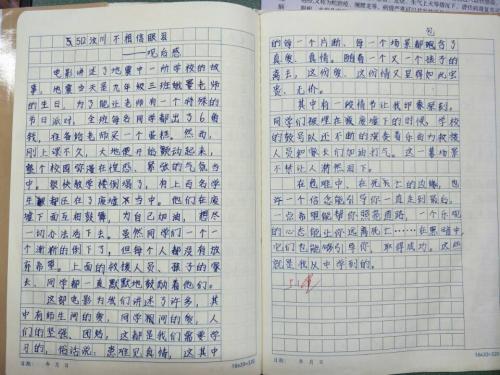 汶川 不相信眼泪
——观后感
电影讲述了地震中一所学校的故
事,地震当天是九年级三班班老师
的生日,为了能让老师有一个特殊的
节日派对,全班每名同学都出了6角
钱,准备给老师买一个蛋糕。然而,
刚上课不久,大地便开始颤动起来,
整个校园弥漫在惶恐、紧张的气氛当
中。很快教学楼倒塌了,有上百名学
生都压在了废墟当中。他们在废
墟下面互相鼓舞,为自己加油,想尽
一切办法活下去。虽然同学们一个一
个渐渐的倒下了,但每个人都没有放
弃希望。上面的救援人员、孩子的家
长、同学都一直默默地鼓励着他们。
这部电影为我们讲述了许多,其
中有师生间的爱,同学般间的爱,人
们的坚强、团结,这都是我们需要学
习的,俗话说:患难见真情,这其中
日期: 年 月 日
16×20=320
的每一个片断、每一个场景都融合了
真爱、真情。随着一个又一个孩子的
离去,这份爱、这份情又显得如此宝
贵、无价。
其中有一段情节让我印象深刻,
同学们被埋在废墟下的时候,学校
的鼓号队还不断的演奏着乐曲为救援
人员和家长们加油打气。这一幕场景
不禁让人潸然泪下。
在危难中,在死亡的边缘,也
许一个信念能引导你一直走到最后,
一点希望能帮你照亮道路,一个乐观
的心态能让你远离死亡……在黑暗中,
它们也能够引导你,取得成功。这些
就是我从中学到的。
日期: 年 月 日
16×20=320